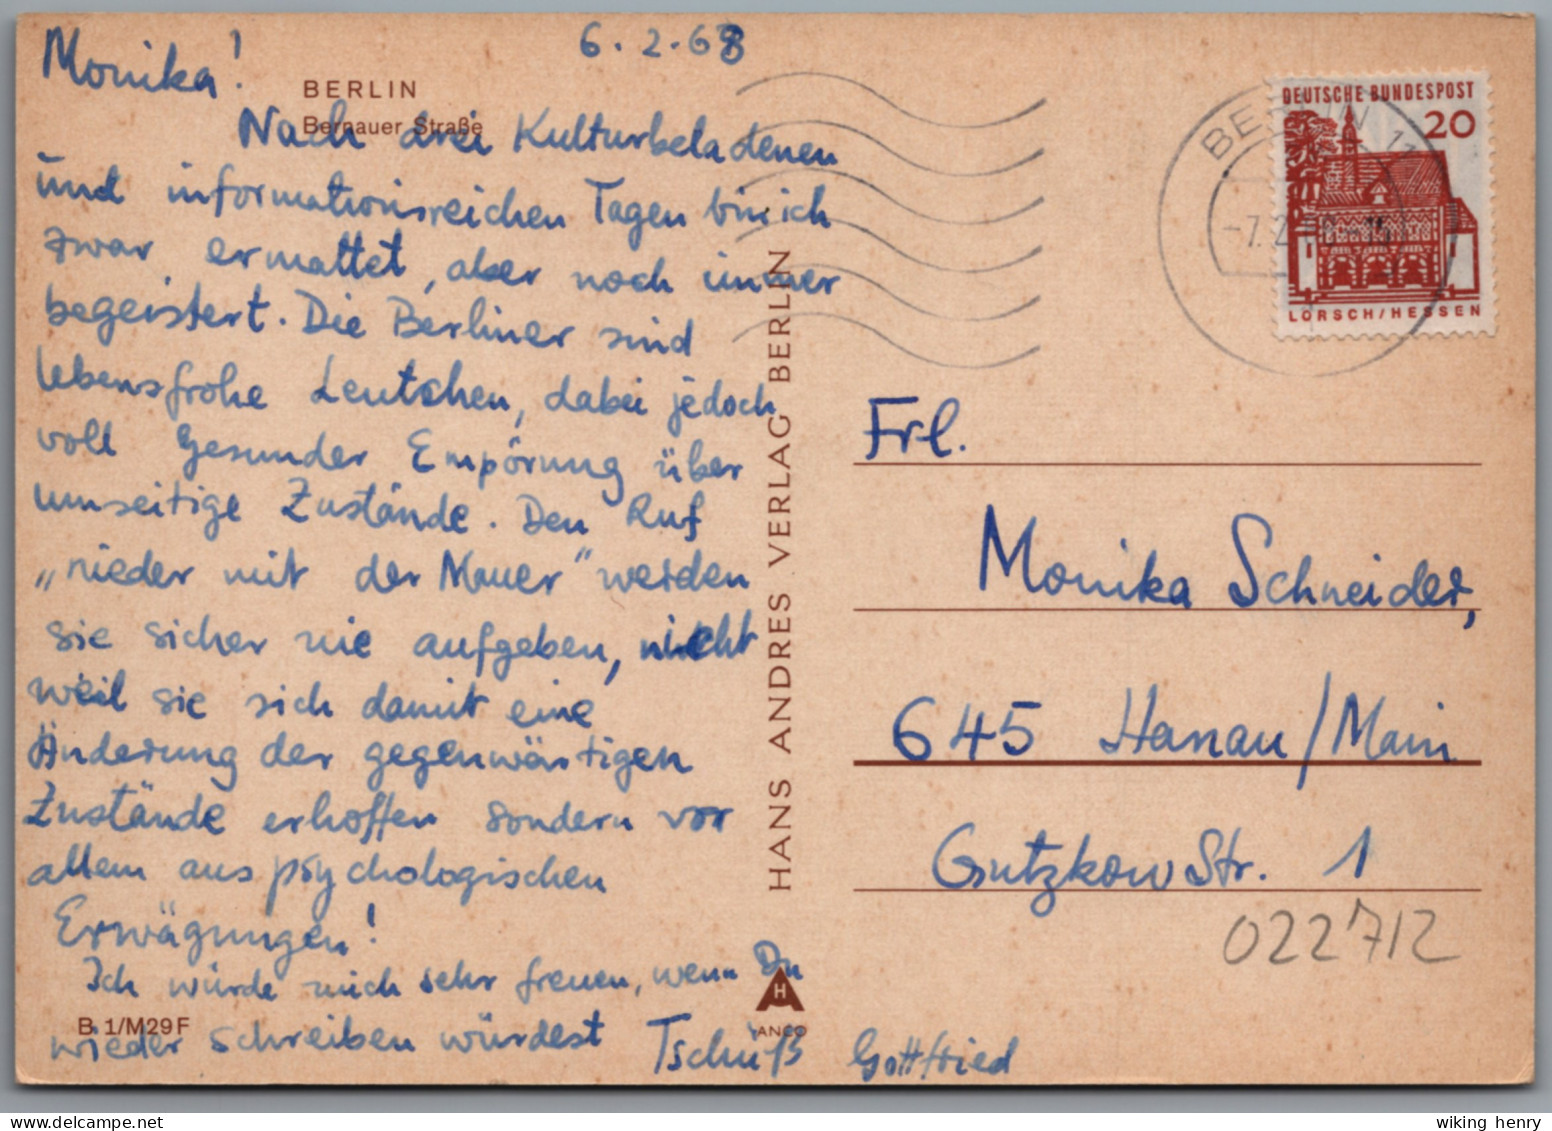 Monika!
6.2.68
BERLIN
Bernauer Straße
Nach drei Kulturbeladenen
und informationsreichen Tagen bin ich
zwar ermattet, aber noch immer
begeistert. Die Berliner sind
lebensfrohe Leutchen, dabei jedoch
voll gesunder Empörung über
umseitige Zustände. Den Ruf
„nieder mit der Mauer“ werden
sie sicher nie aufgeben, nicht
weil sie sich damit eine
Änderung der gegenwärtigen
Zustände erhoffen sondern vor
allem aus psychologischen
Erwägungen!
Ich würde mich sehr freuen, wenn Du
wieder schreiben würdest
Tschüß Gottfried
B 1/M29F
HANS ANDRES VERLAG BERLIN
H
ANCO
DEUTSCHE BUNDESPOST
20
LORSCH/HESSEN
BERLIN 11
-7.2
Frl.
Monika Schneider,
645 Hanau/Main
Gutzkow Str. 1
022712
wiking henry